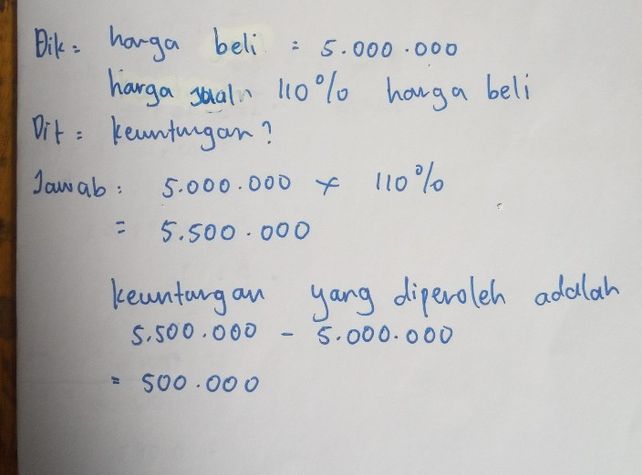 Dik = harga beli = 5.000.000
harga jual 110% harga beli
Dit = keuntungan?
Jawab : 5.000.000 × 110%
= 5.500.000
keuntungan yang diperoleh adalah
5.500.000 - 5.000.000
= 500.000